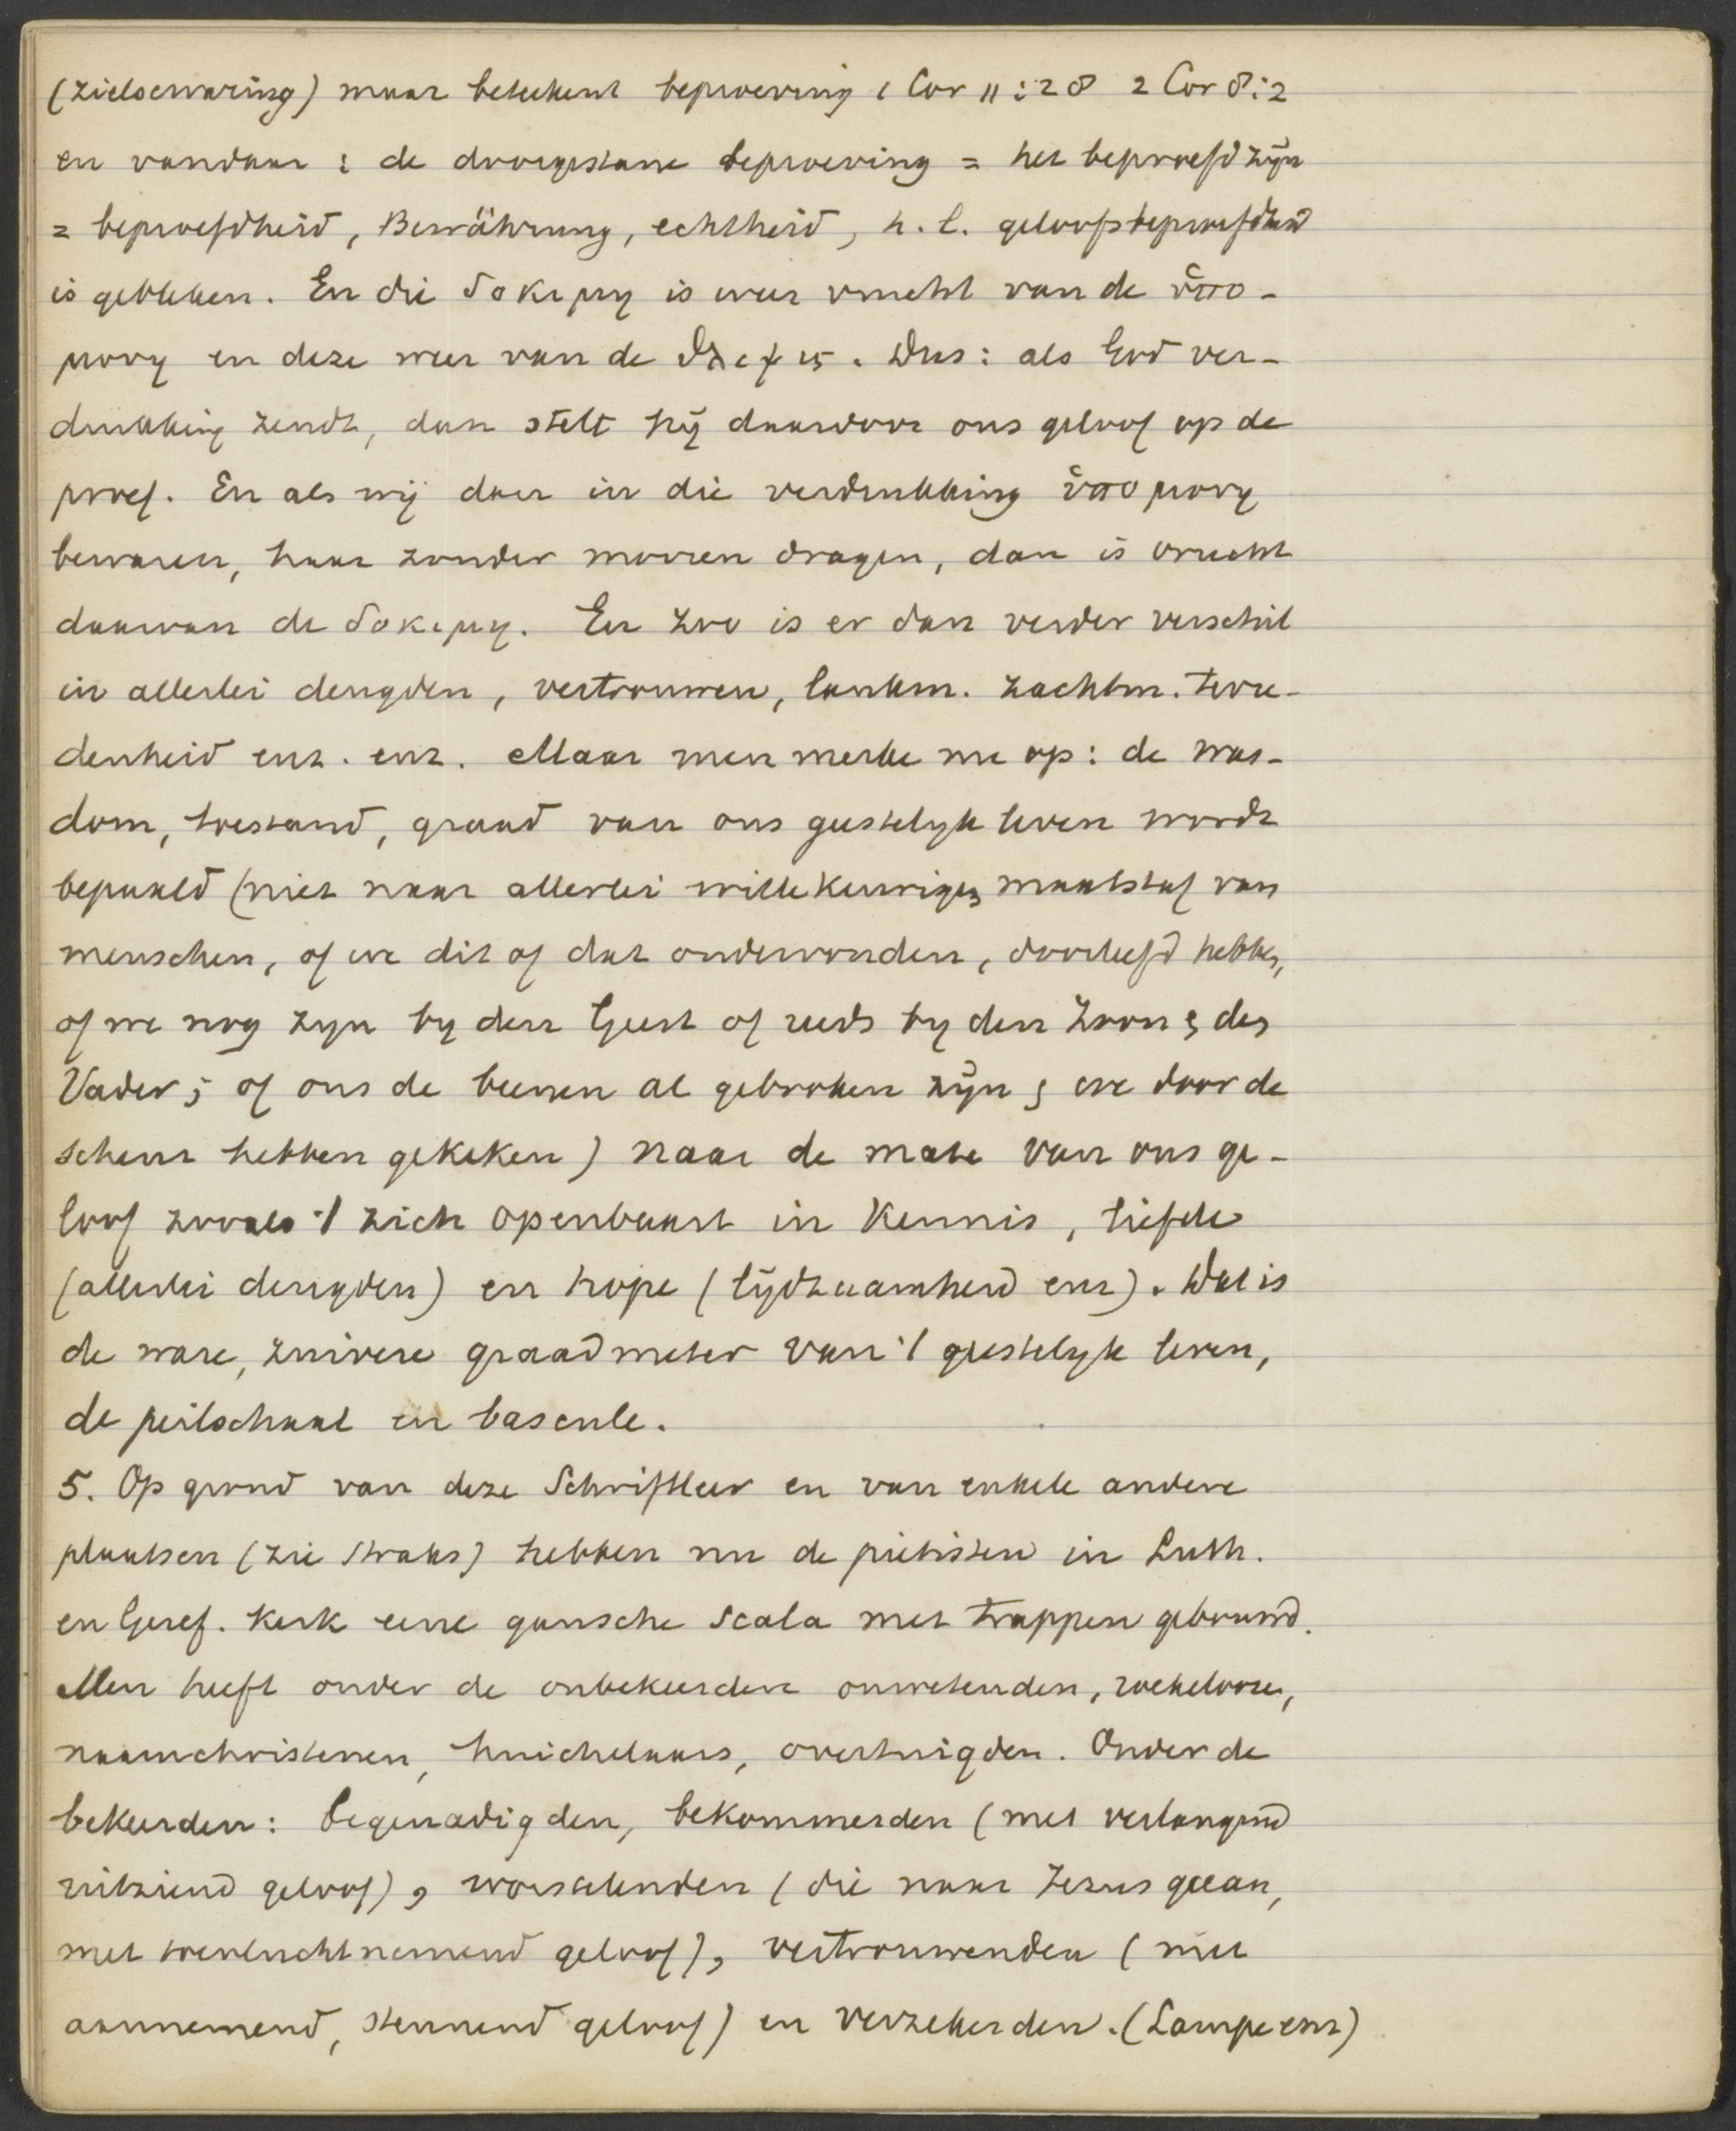 (zielservaring) maar beteekent beproeving 1 Cor 11:28 2 Cor 8:2
en vandaar : de doorgestane beproeving = het beproefd zijn
= beproefdheid, Bewährung, echtheid, h.l. geloofsbeproefdheid
is gebleken. En die δοκιμη is weer vrucht van de ὑπο-
μονη en deze weer van de θλιψις. Dus: als God ver-
drukking zendt, dan stelt hij daardoor ons geloof op de
proef. En als wij dan in die verdrukking ὑπομονη
bewaren, haar zonder morren dragen, dan is vrucht
daarvan de δοκιμη. En zoo is er dan verder verschil
in allerlei deugden, vertrouwen, lankm. zachtm. tevre-
denheid enz. enz. Maar men merke nu op: de was-
dom, toestand, graad van ons geestelyk leven wordt
bepaald (niet naar allerlei willekeurigen maatstaf van
menschen, of we dit of dat ondervonden, doorleefd hebben,
of we nog zyn by den Geest of reeds by den Zoon & den
Vader; of ons de beenen al gebroken zijn & we door de
scheur hebben gekeken) naar de mate van ons ge-
loof zooals 't zich openbaart in Kennis, liefde
(allerlei deugden) en hope (lijdzaamheid enz). Dat is
de ware, zuivere graadmeter van 't geestelyk leven,
de peilschaal en bascule.
5. Op grond van deze Schriftleer en van enkele andere
plaatsen (zie straks) hebben nu de pietisten in Luth.
en Geref. Kerk eene gansche scala met trappen gebouwd.
Men heeft onder de onbekeerden onwetenden, roekelooze,
naamchristenen, huichelaars, overtuigden. Onder de
bekeerden: begenadigden, bekommerden (met verlangend
uitziend geloof), worstelenden (die naar Jezus gaan,
met toevluchtnemend geloof), vertrouwenden (met
aannemend, steunend geloof) en verzekerden. (Lampe enz)